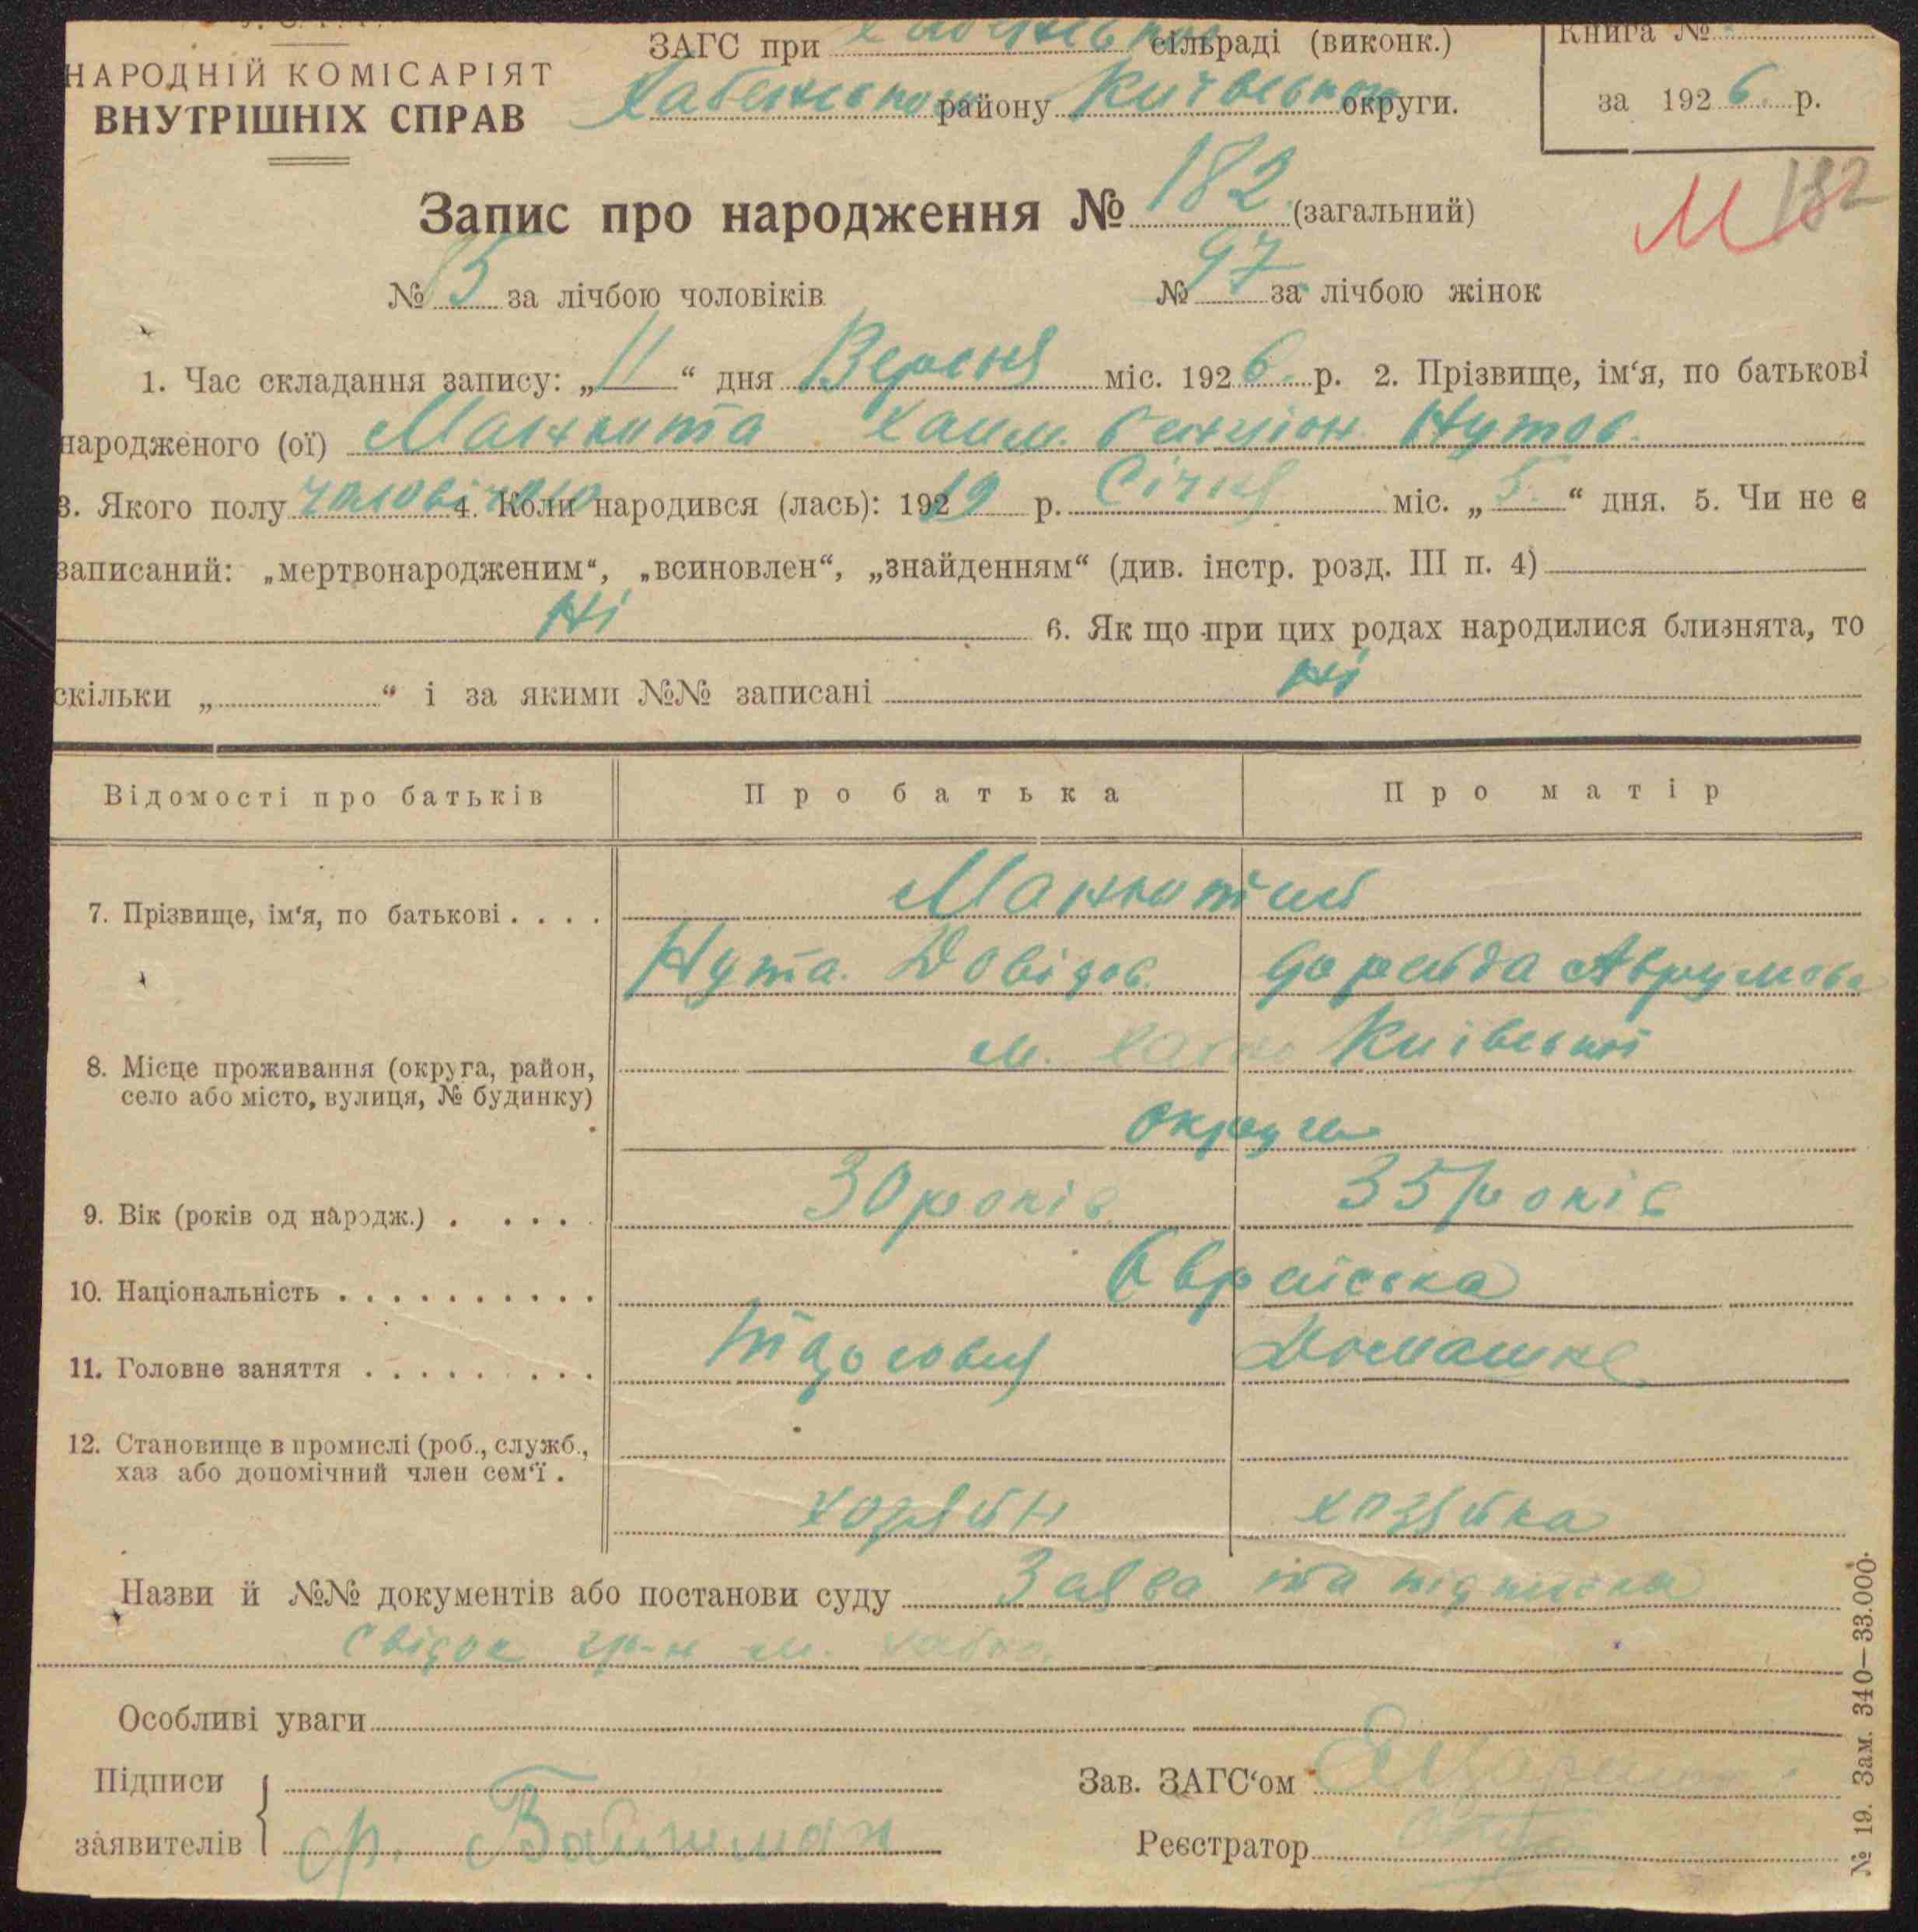 НАРОДНІЙ КОМІСАРІЯТ
ВНУТРІШНІХ СПРАВ
ЗАГС при сільраді (виконк.)
Хабенського району Київської округи.
Книга №
за 1926 р.
Запис про народження № 182 (загальний)
М 182
№ 85 за лічбою чоловіків № 97 за лічбою жінок
1. Час складання запису: „11“ дня Вересня міс. 1926 р. 2. Прізвище, ім‘я, по батькові
народженого (ої) Манкита Хаим Бенціон Нутов.
3. Якого полу чоловічого 4. Коли народився (лась): 19219 р. Січня міс. „5.“ дня. 5. Чи не є
записаний: „мертвонародженим“, „всиновлен“, „знайденням“ (див. інстр. розд. III п. 4)
Ні
6. Як що при цих родах народилися близнята, то
скільки „ “ і за якими №№ записані ні
Відомості про батьків Про батька Про матір
7. Прізвище, ім‘я, по батькові . . . .
Нута Довідов.
8. Місце проживання (округа, район,
село або місто, вулиця, № будинку)
м. Київської
округи
9. Вік (років од народж.) . . . . . 30 років 35 років
10. Національність . . . . . . . . . . Єврейська
11. Головне заняття . . . . . . . . . Домашнє
12. Становище в промислі (роб., служб.,
хаз або допомічний член сем‘ї .
хозяйн хозяйка
Назви й №№ документів або постанови суду Заява та підписка
свідок гр-н м.
Особливі уваги
Підписи
заявителів
Зав. ЗАГС‘ом
Реєстратор
№ 19. Зам. 340—33.000.